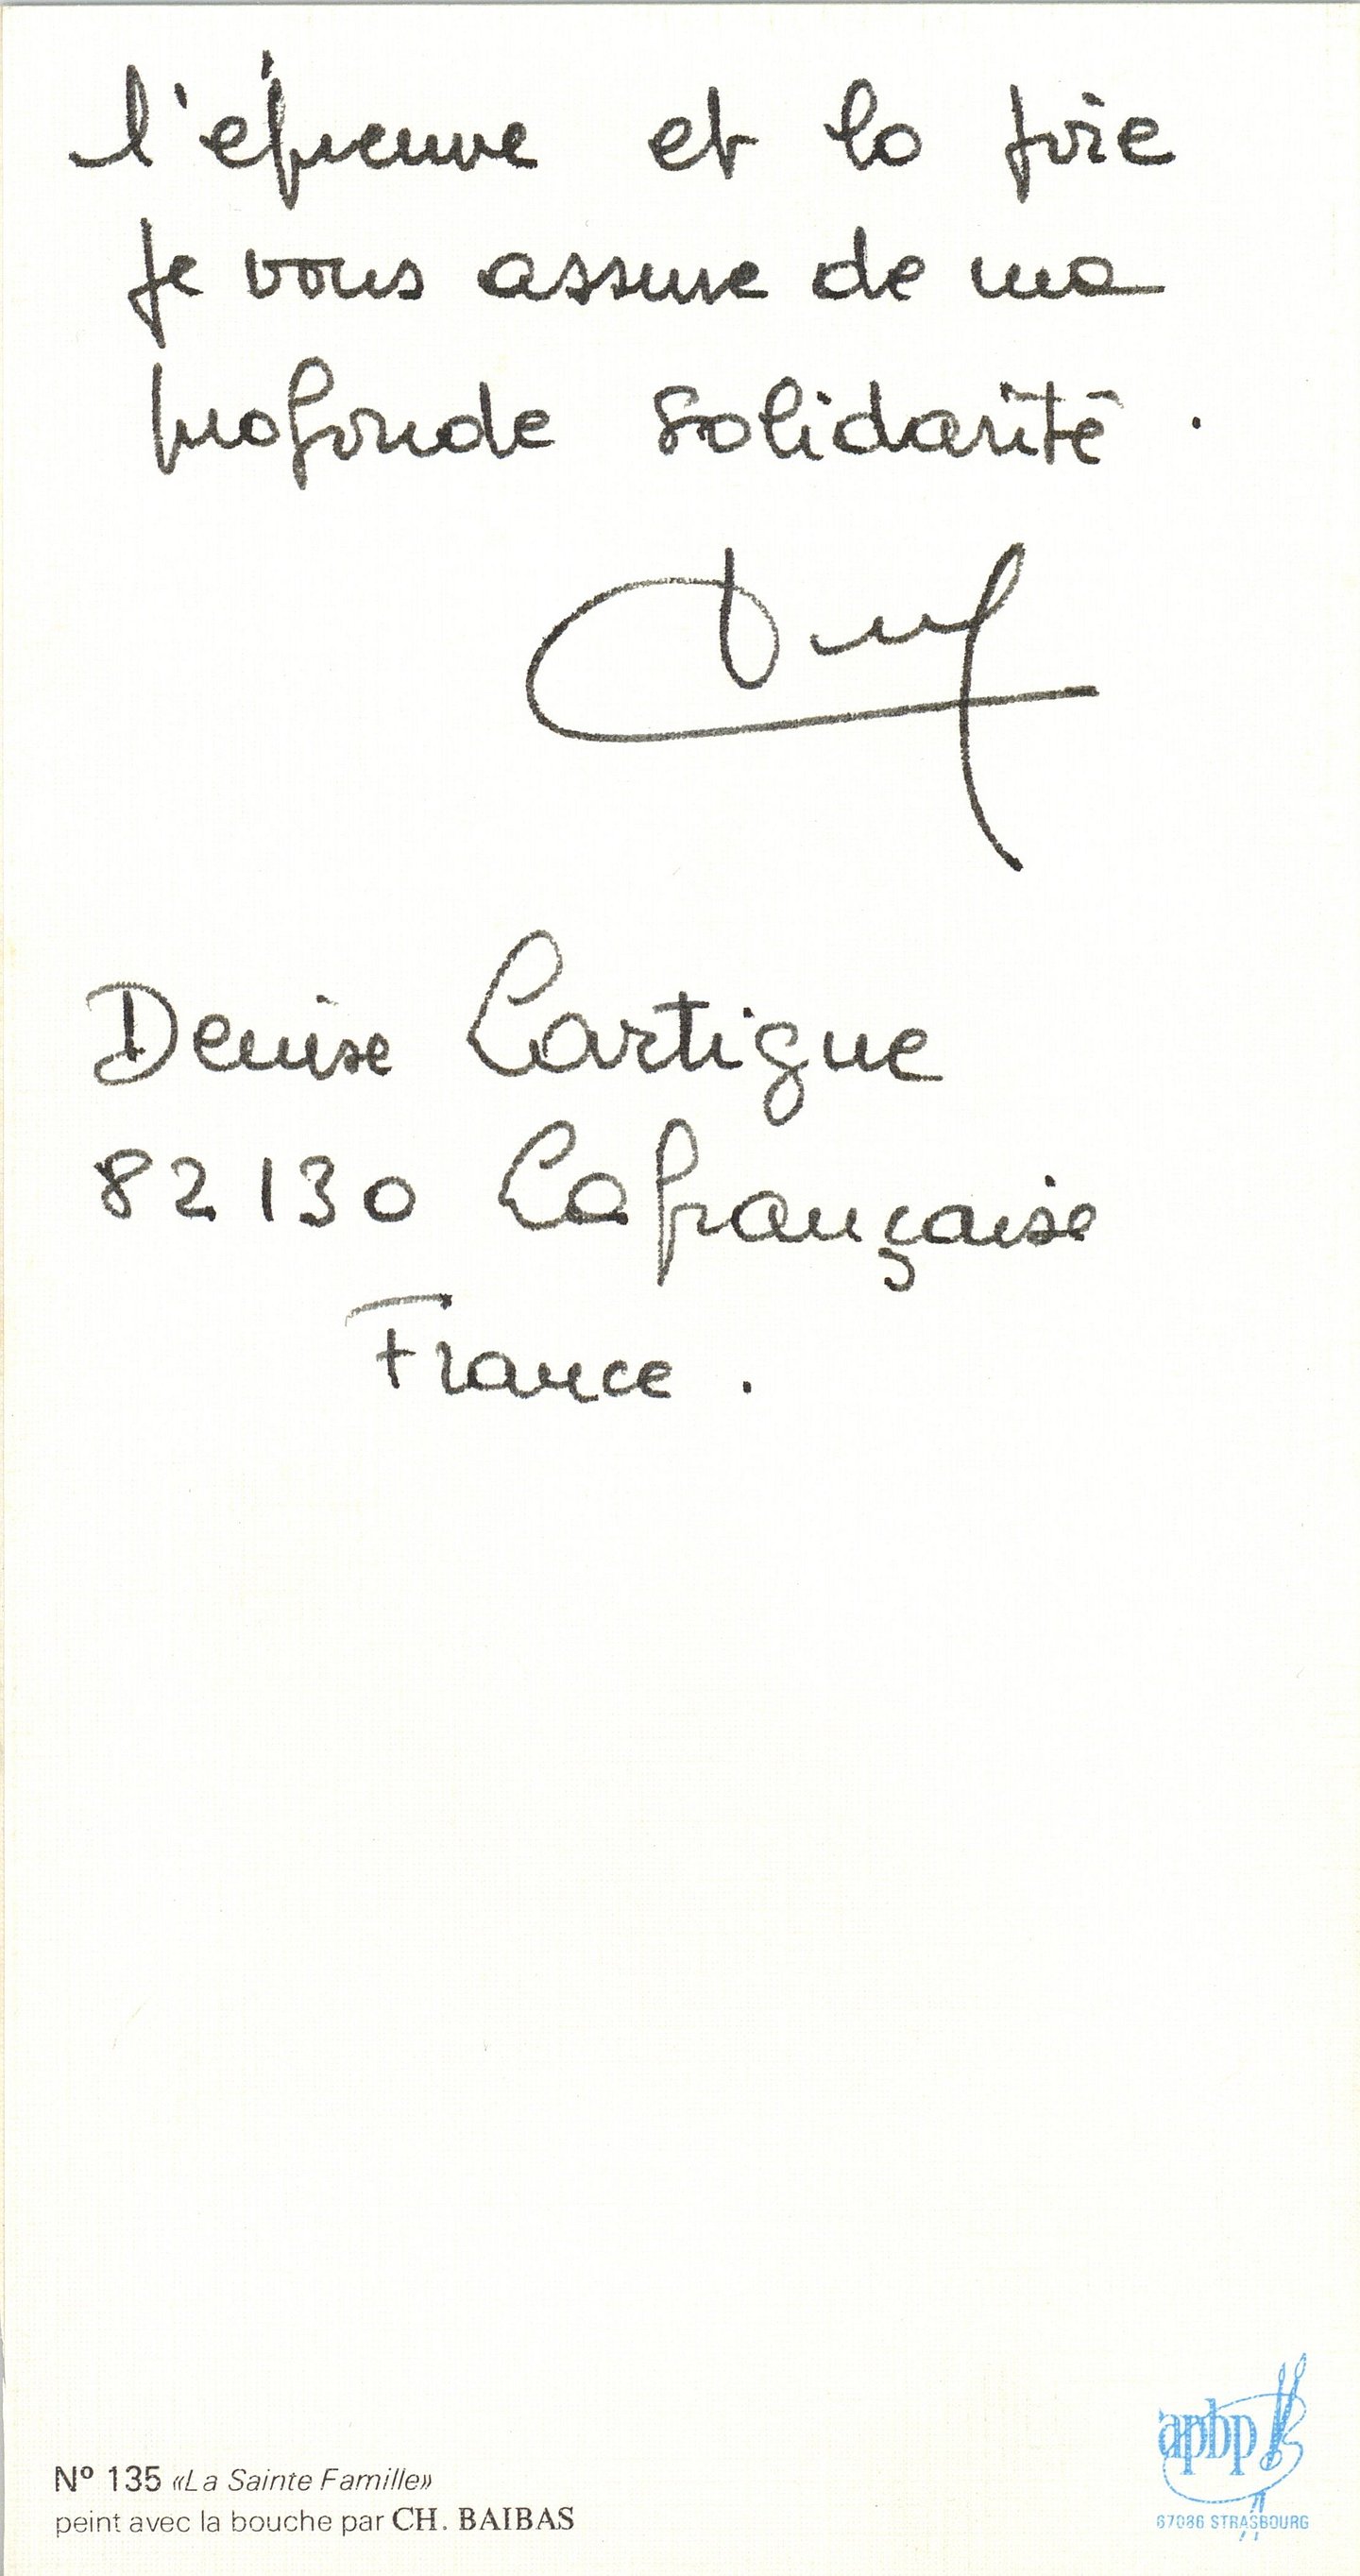 l'épreuve et la joie
je vous assure de ma
profonde solidarité.
Denise Lartigue
82130 Lafrançaise
France.
apbp
67086 STRASBOURG
Nº 135 «La Sainte Famille»
peint avec la bouche par CH. BAIBAS